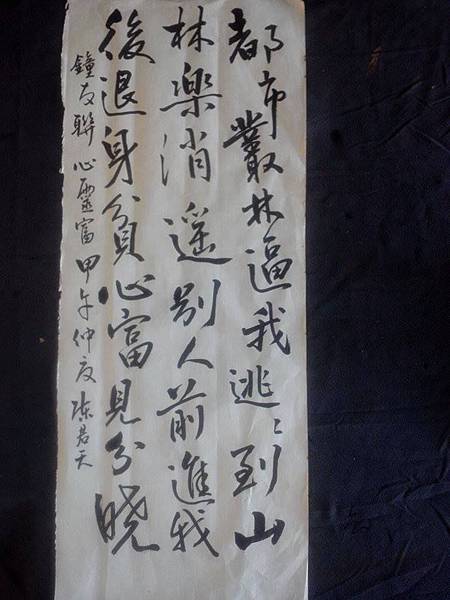 都市叢林逼我逃〻到山
林樂消遥别人前進我
後退身貧心富見分曉
鐘友聯 心靈富 甲午仲夏 陈若天